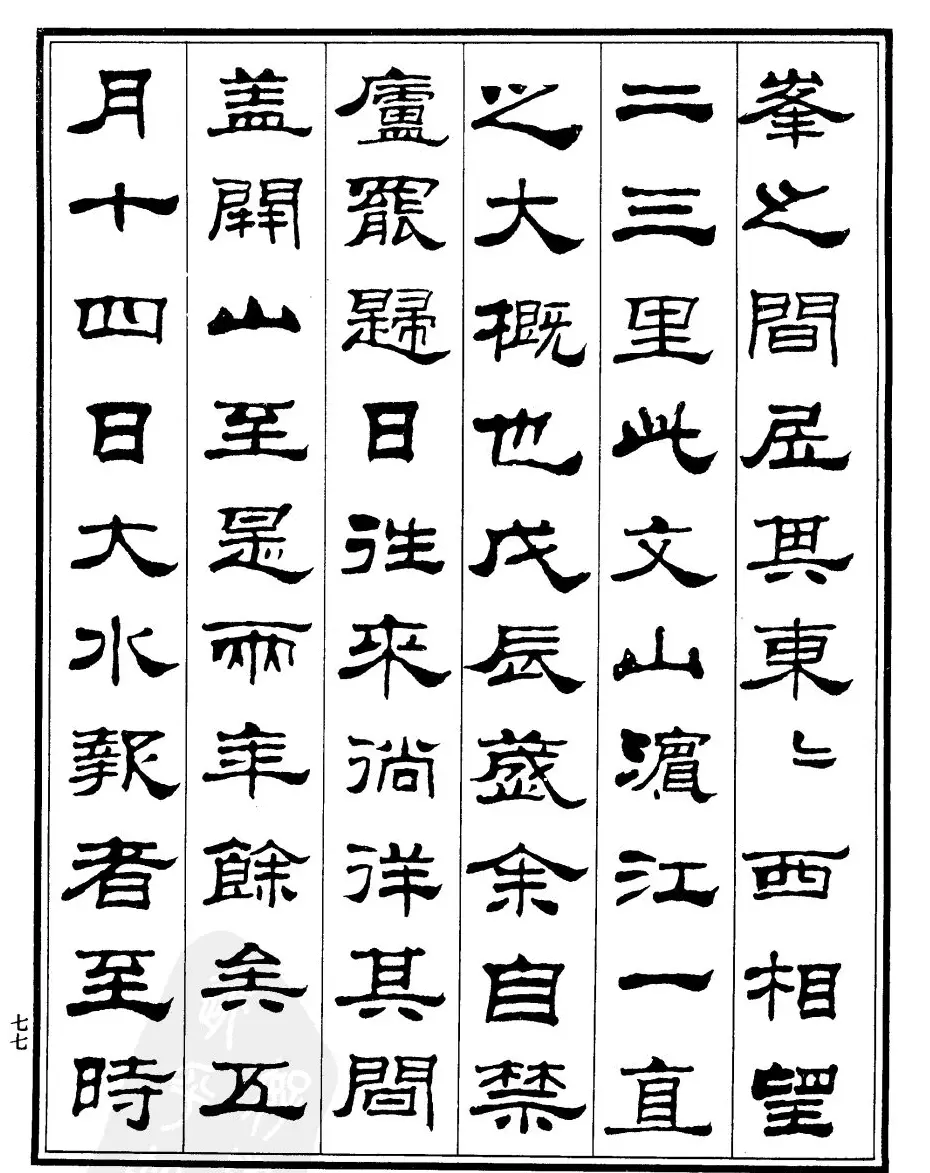 峯之間居其東〻西相望
二三里此文山濱江一直
之大概也戊辰歲余自禁
廬罷歸日往來徜徉其間
盖開山至是兩年餘矣五
月十四日大水報者至時
七七